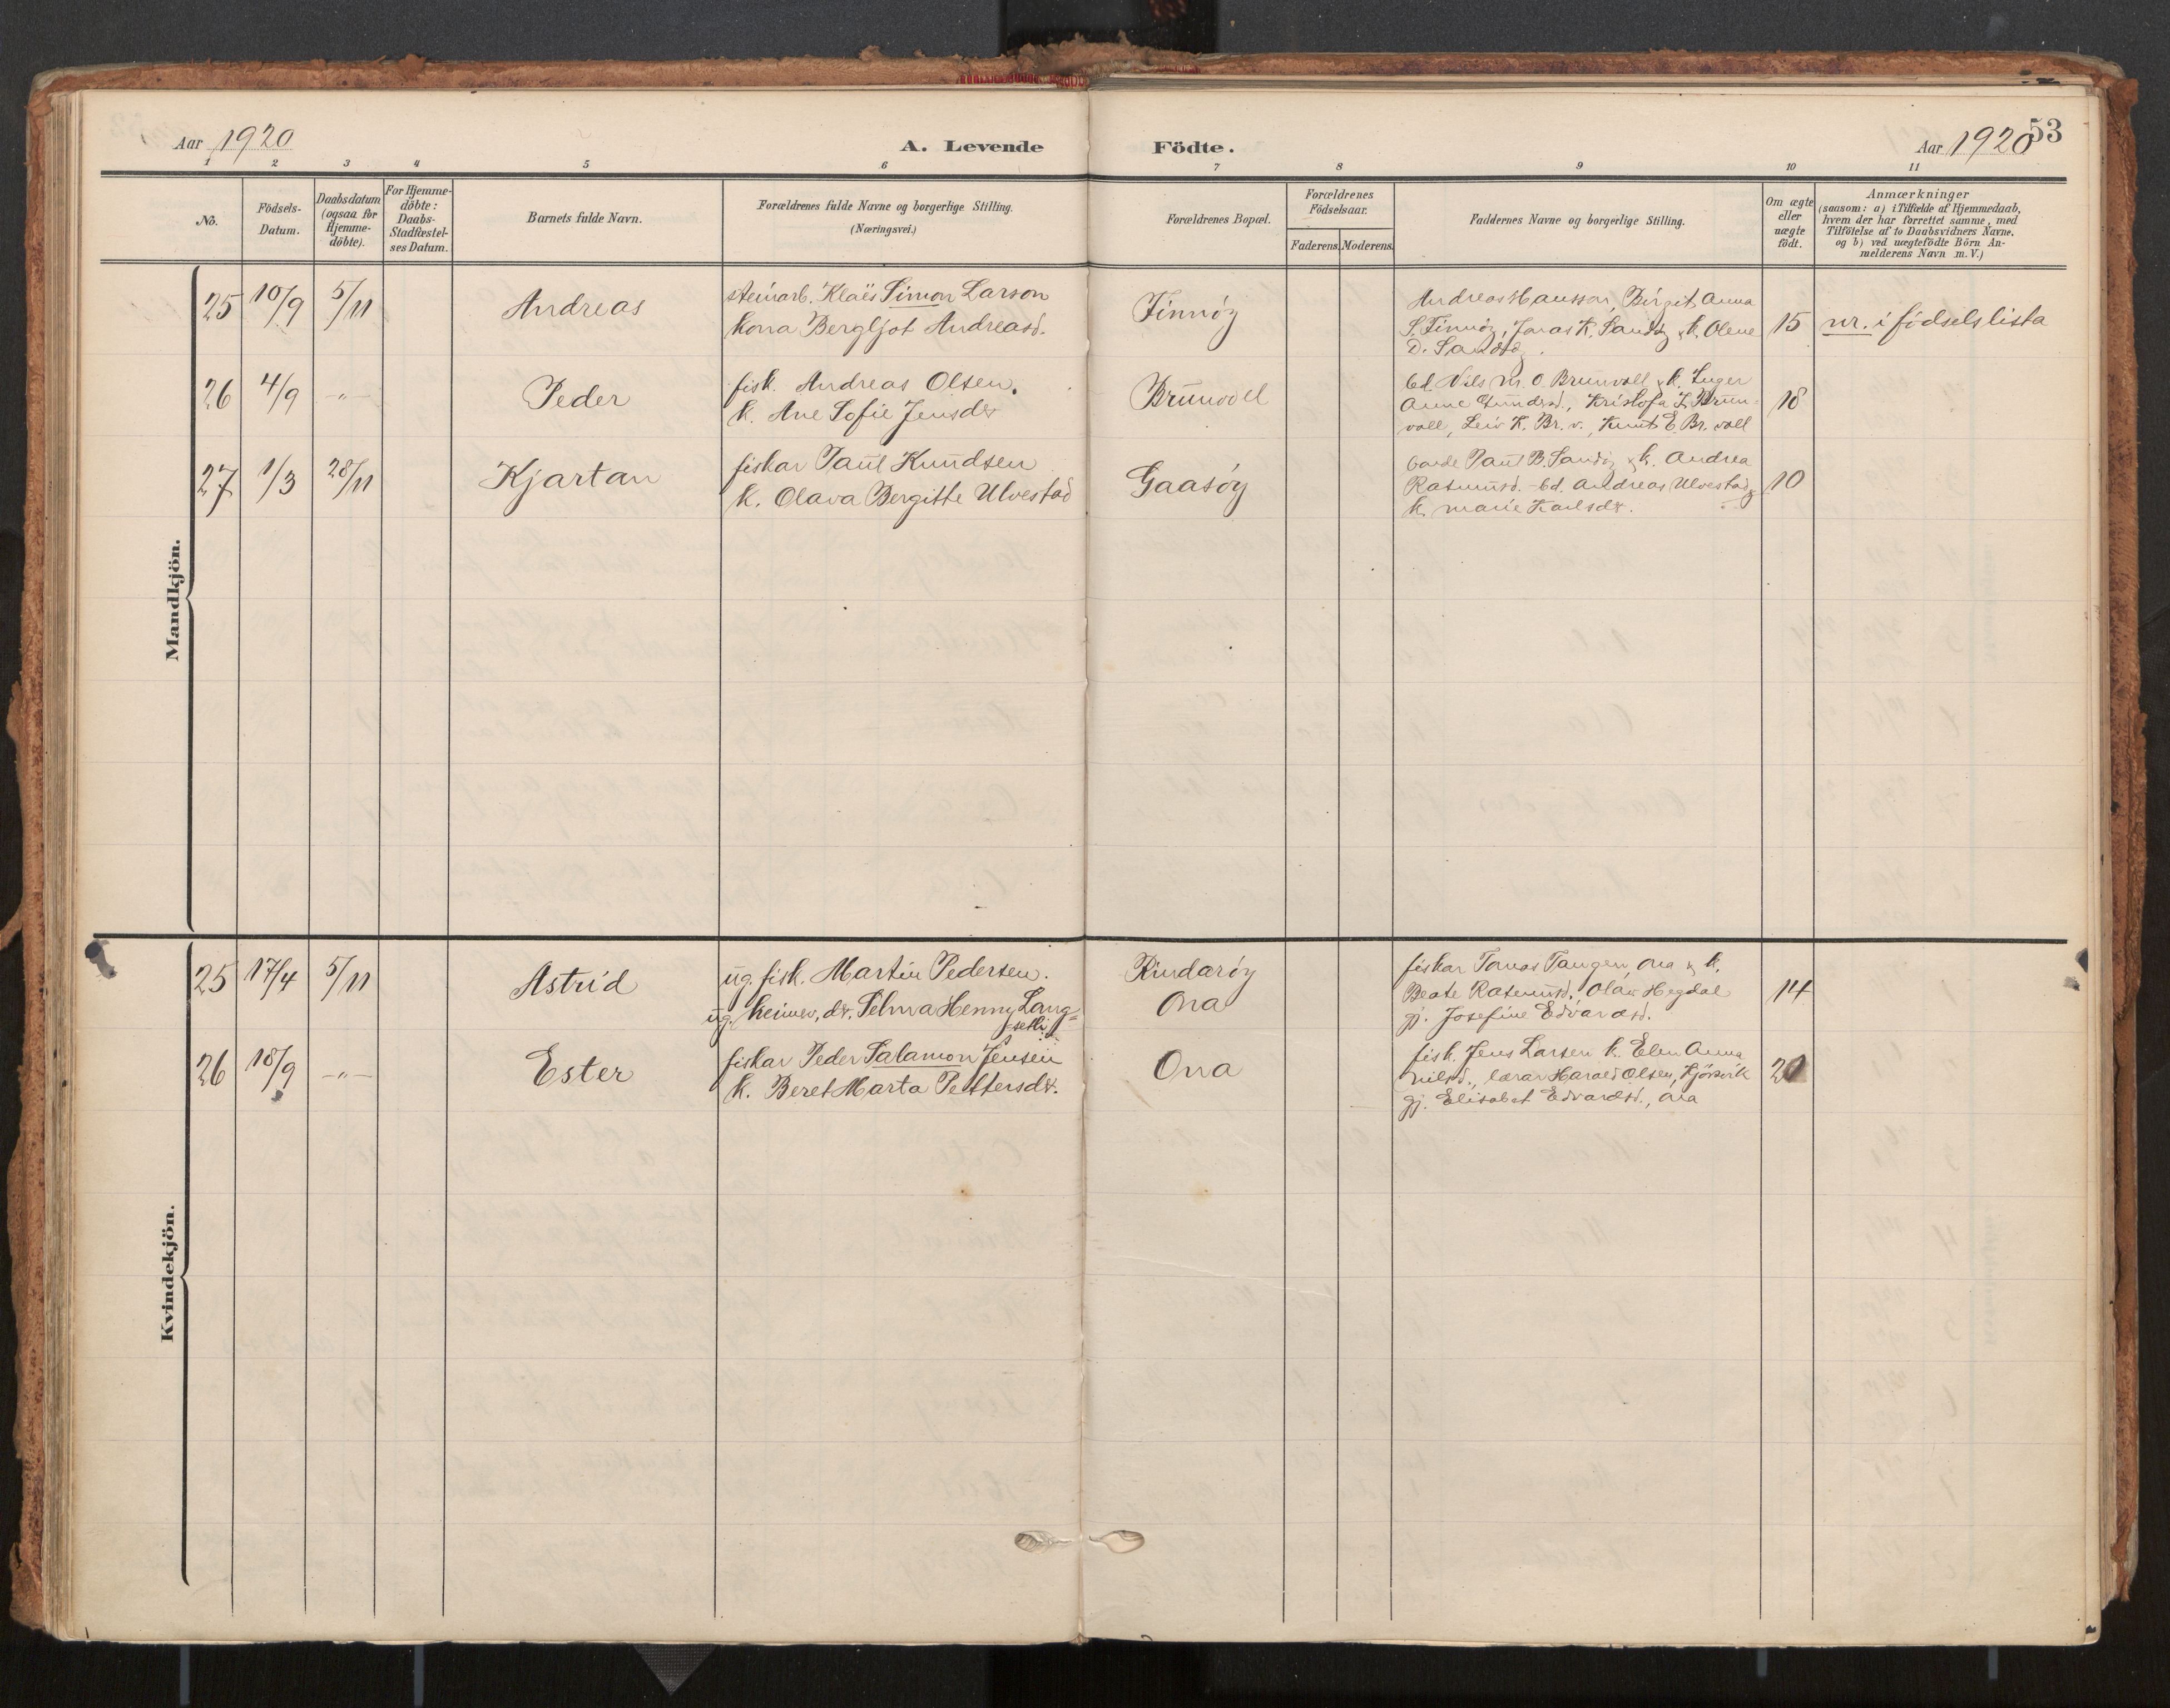 Aar 1920
A. Levende
Födte.
Aar 1920
53
1 2 3 4 5 6 7 8 9 10 11
Nö.
Födsels-
Datum.
Daabsdatum
(ogsaa for
Hjemme-
döbte).
For Hjemme-
döbte:
Daabs-
Stadfæstel-
ses Datum.
Barnets fulde Navn.
Forældrenes fulde Navne og borgerlige Stilling.
(Næringsvei.)
Forældrenes Bopæl.
Forældrenes
Födselsaar.
Faderens. Moderens.
Faddernes Navne og borgerlige Stilling.
Om ægte
eller
uægte
födt.
Anmærkninger
(saasom: a) i Tilfælde af Hjemmedaab,
hvem der har forrettet samme, med
Tilföielse af to Daabsvidners Navne.
og b) ved uægtefödte Börn An-
melderens Navn m. V.)
Mandkjön.
25 10/9 5/11 Andreas
steinarb. Klaës Simon Larson
kona Bergljot Andreasd.
Finnöy
Andreas Hansson, Birgit Anna
S. Finnöy, Jonas K. Sandöy & k. Olene
D. Sandöy.
15
nr. i födselslista
26 4/9 -"- Peder
fisk. Andreas Olsen.
k. Ane Sofie Jensdtr
Brunvoll
bd. Nils M. O. Brunvoll & k. Inger
Anne Gundersd., Kristofa K. Brun-
voll, Leiv K. Br. v., Knut E. Br. voll
18
27 1/3 28/11 Kjartan
fiskar Paul Knudsen
k. Olava Bergitte Ulvestad
Gaasöy
Paul B. Sandöy & k. Andrea
Rasmusd. - bd. Andreas Ulvestad &
k. Marie Karlsdtr.
10
Kvindekjön.
25 17/4 5/11 Astrid
ug. fisk. Martin Pedersen.
ug. heimev. dtr. Selma Henny Lang-
setli
Rindaröy
Ona
fiskar Tomas Tangen, Ona & k.
Beate Rasmusd., Olav Hegdal
gj. Josefine Edvardsd.
14
26 18/9 -"- Ester
fiskar Peder Salamon Jensen
k. Beret Marta Pettersdtr.
Ona
fisk. Jens Larsen k. Elen Anna
Nilsd., lærar Harald Olsen, Kjörsvik
gj. Elisabet Edvardsd., Ona
20